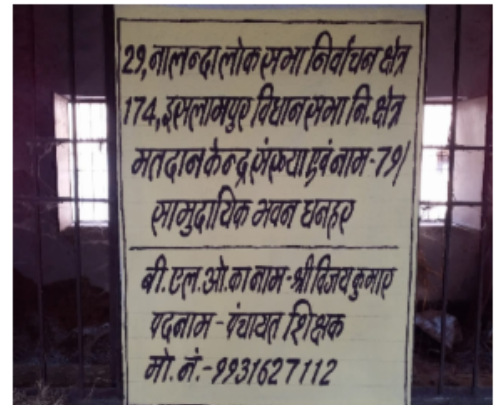 29,नालन्दा लोक सभा निर्वाचन क्षेत्र
174,इसलामपुर विधान सभा नि. क्षेत्र
मतदान केन्द्र संख्या एवं नाम-79/
सामुदायिक भवन धनहर
बी.एल.ओ.का नाम-श्री विजय कुमार
पदनाम-पंचायत शिक्षक
मो.नं.-9931627112